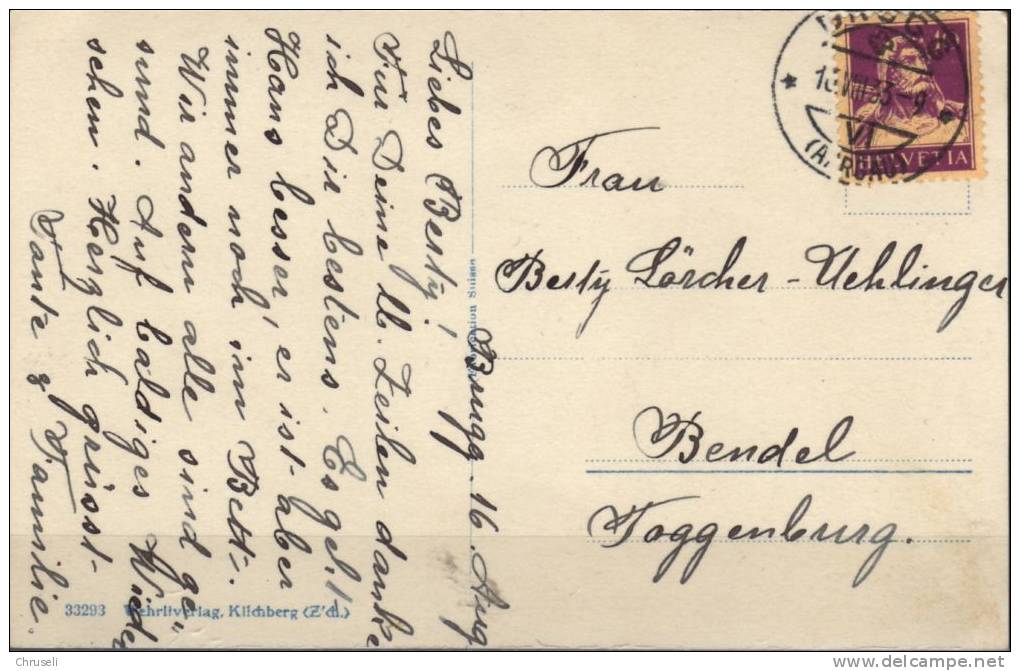 Brugg. 16. Aug
Liebes Berty!
Für Deine lb. Zeilen danke
ich Dir bestens. Es geht
Hans besser, er ist aber
immer noch im Bett.
Wir andern alle sind ge=
sund. Auf baldiges Wieder
sehen. Herzlich grüsst
Tante & Familie.
HELVETIA
VI
Frau
Berty Lörcher-Uehlinger
Bendel
Toggenburg.
Suisse
33293 Wehrliverlag, Kilchberg (Z'ch.)
Chruseli
delcampe.net